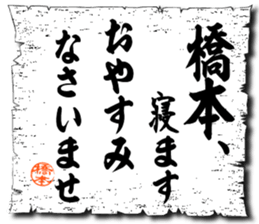 橋本、
寝ます
おやすみ
なさいませ
橋本